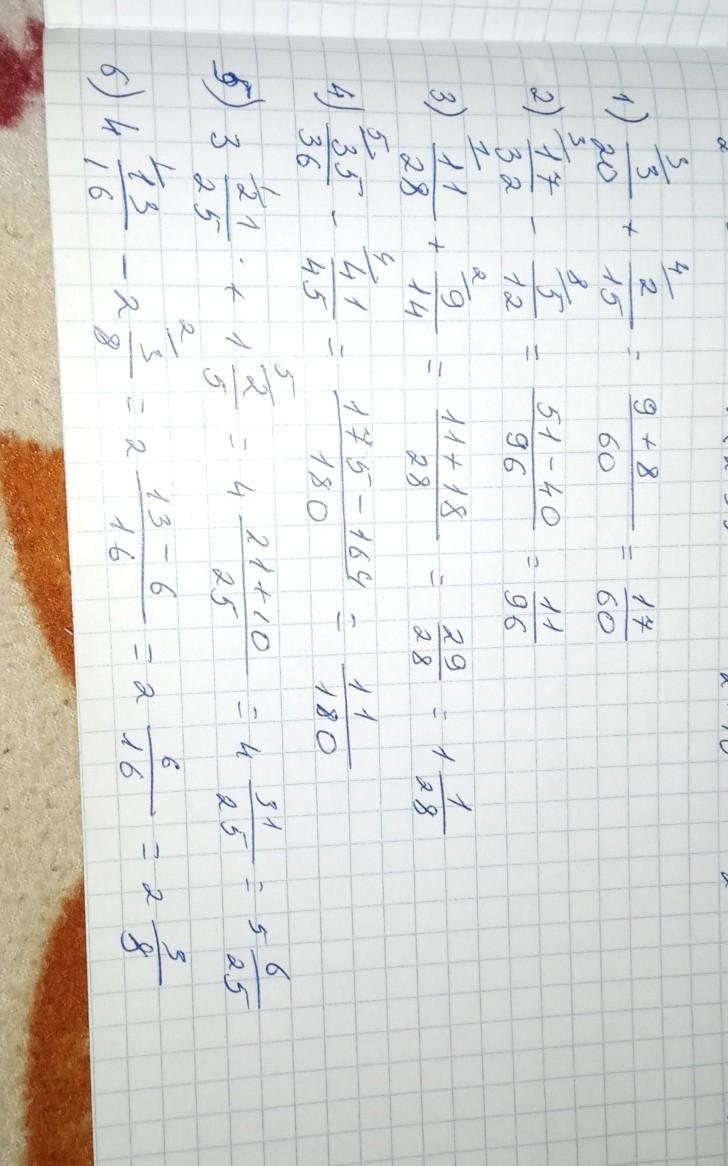 1) 3/20 + 2/15 = 9+8/60 = 17/60
2) 17/32 - 5/12 = 51-40/96 = 11/96
3) 11/28 + 9/14 = 11+18/28 = 29/28 = 1 1/28
4) 35/36 - 41/45 = 175-164/180 = 11/180
5) 3 21/25 + 1 2/5 = 4 21+10/25 = 4 31/25 = 5 6/25
6) 4 13/16 - 2 3/8 = 2 13-6/16 = 2 6/16 = 2 3/8